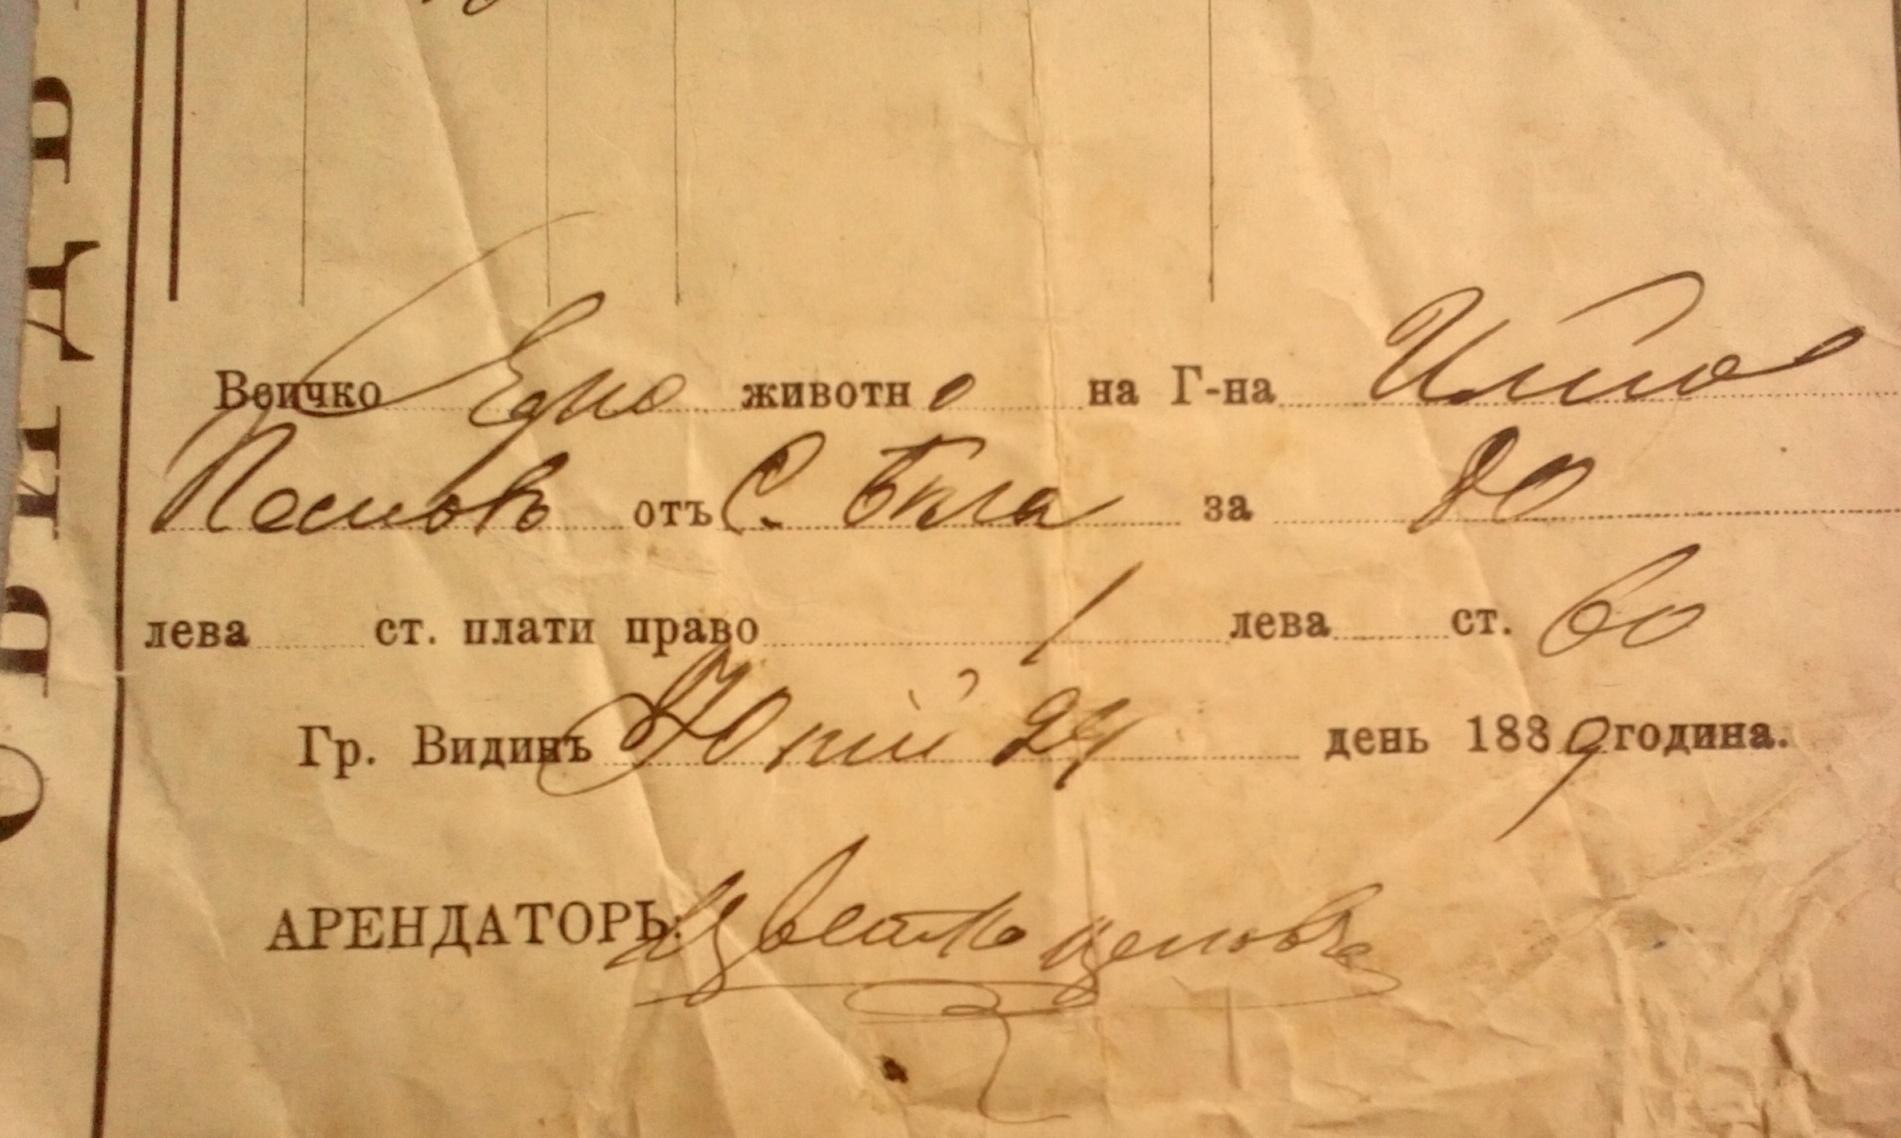 Всичко Едно животно на Г-на Илио
отъ С. Бѣла за 80
лева ст. плати право 1 лева ст. 60
Гр. Видинъ Юний 24 день 1889 година.
АРЕНДАТОРЬ: Цвѣтко Ценовъ